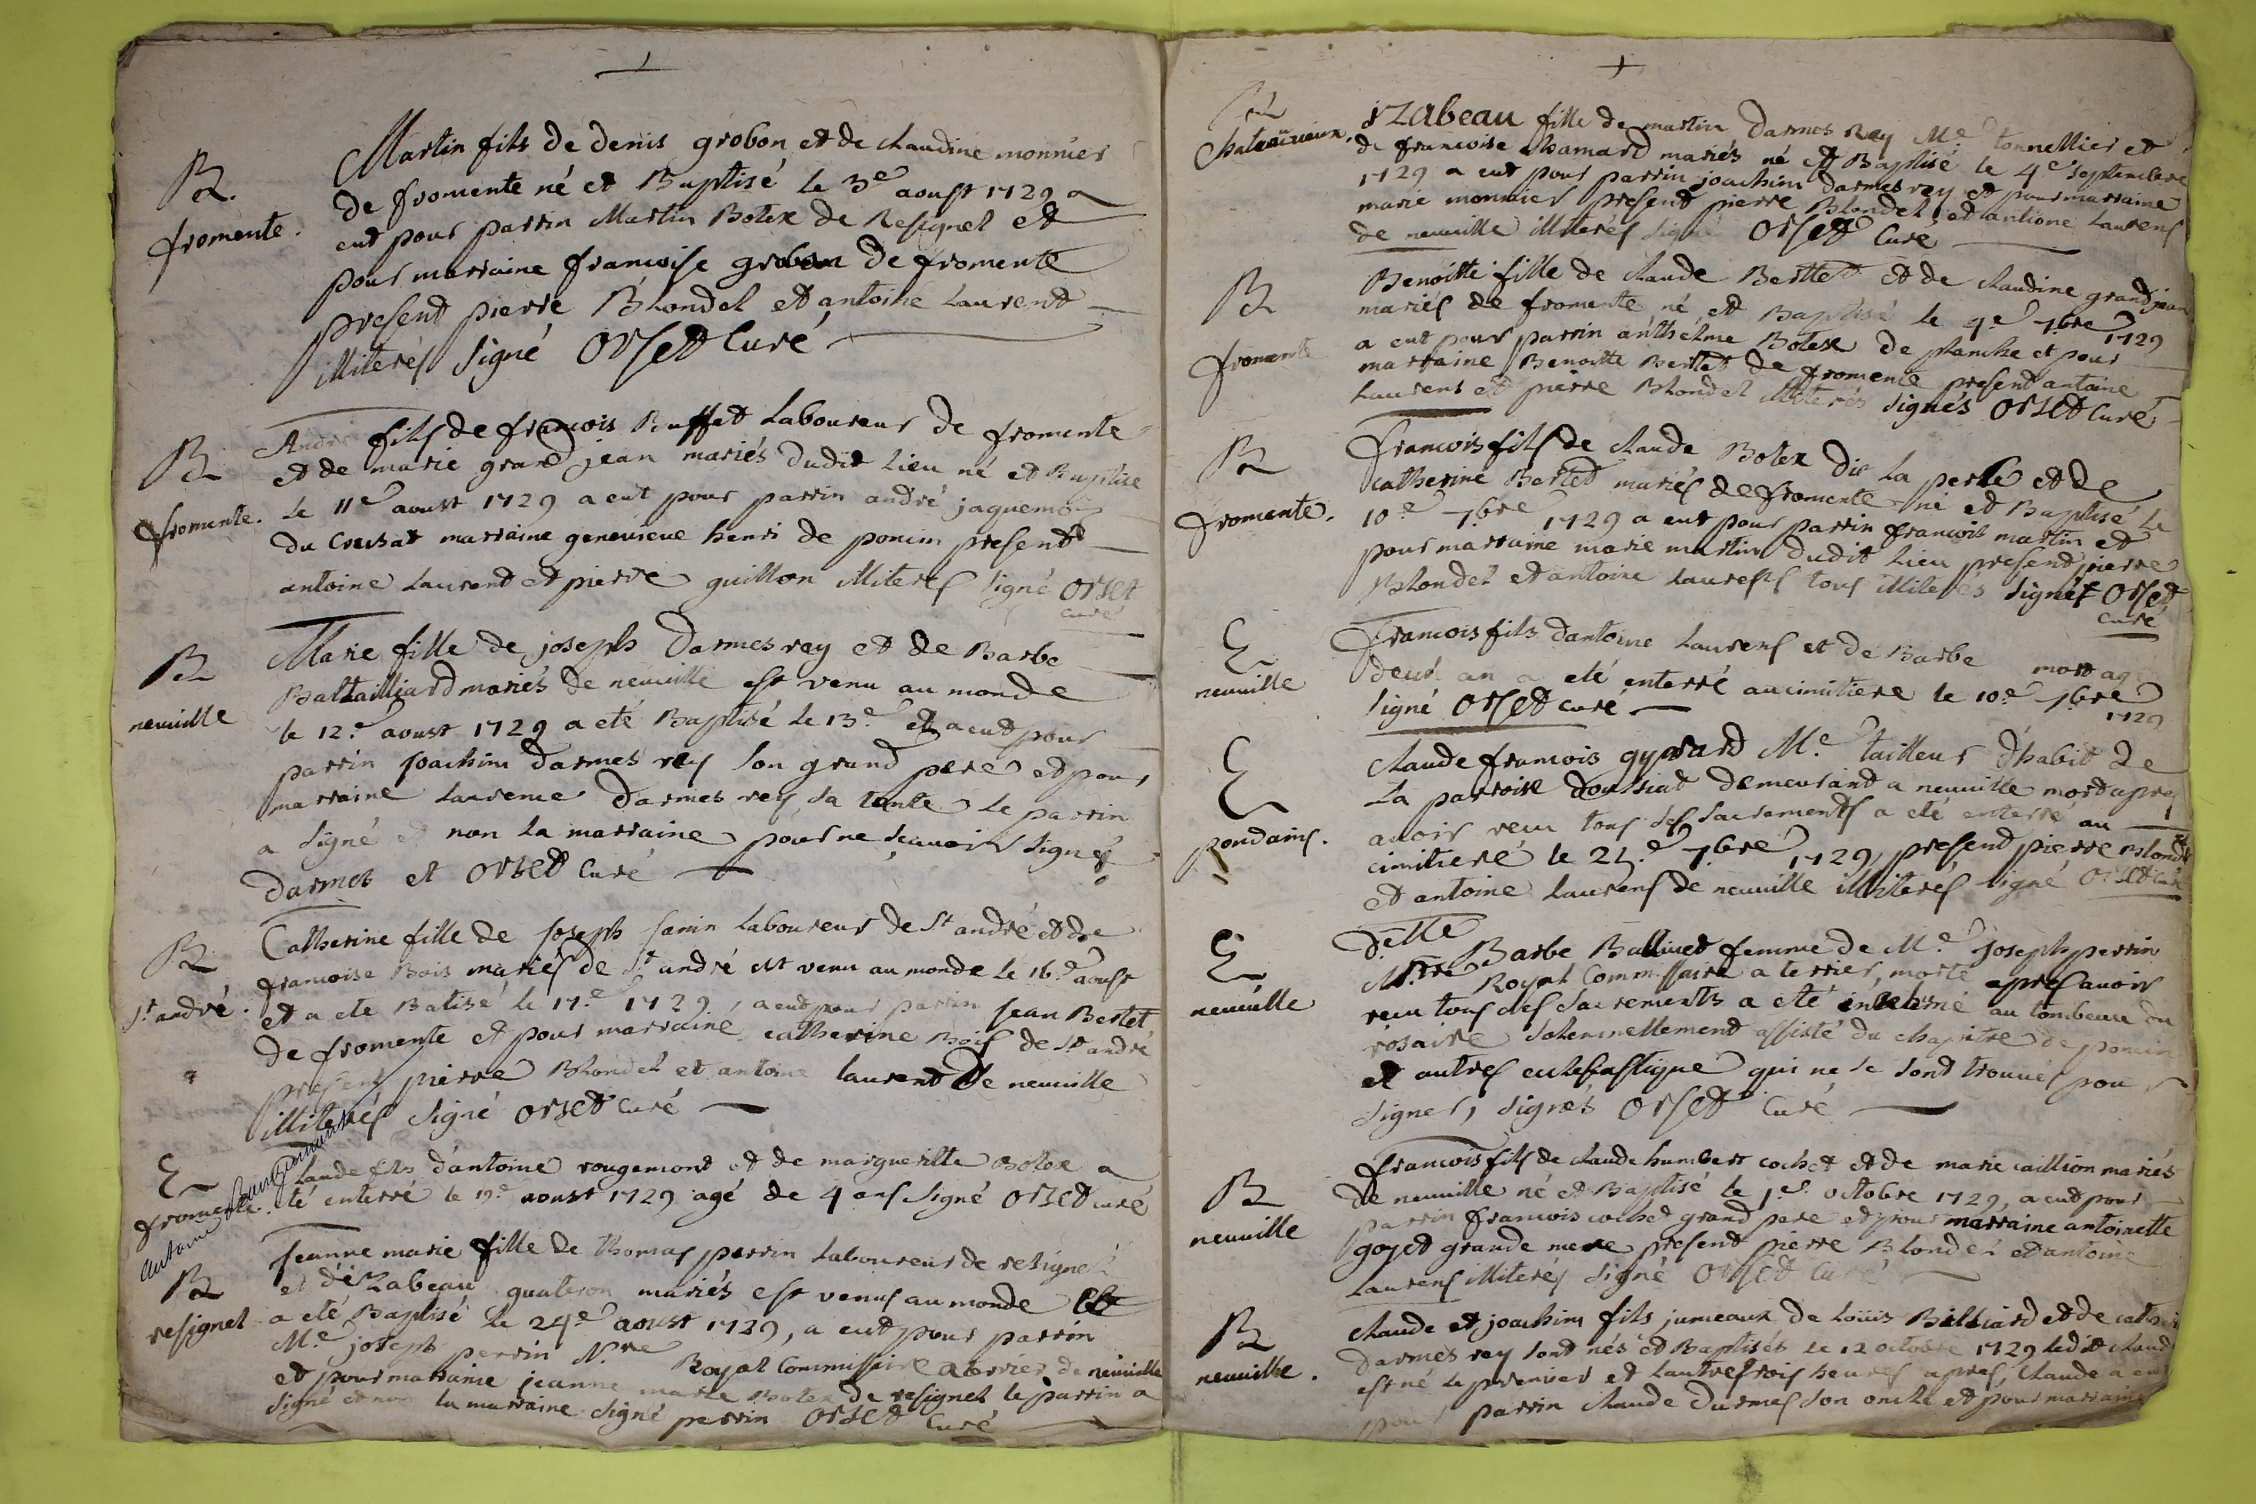 B.
fromente.
Martin fils de denis grobon et de claudine monnier
de fromente né et Baptisé le 3e aoust 1729 a
eut pour parrin Martin Botex de Resignel et
pour marraine francoise grobon de fromente
present pierre Blondel et antoine Laurent
illiterés signé Orset Curé
B
fromente.
André fils de francois Buffet Laboureur de fromente
et de marie grand jean mariés dudit Lieu né et Baptisé
Le 11e aoust 1729 a eut pour parrin andré jaquemo
du marraine genevieve henri de poncin present
antoine Laurent et pierre guillon illiterés signé Orset
curé
B
neuville
Marie fille de joseph Darmes rey et de Barbe
Baltailliard mariés de neuville est venu au monde
le 12e aoust 1729 a eté Baptisé le 13e et a eut pour
parrin joachim darmes rey son grand pere et pour
marraine Laurence Darmes rey sa tante Le parrin
a signé et non la marraine pour ne scavoir signer
Darmes et Orset Curé
B
st andré.
Catherine fille de joseph janin Laboureur de st andré et de
francoise Bois mariés de st andré est venu au monde le 16e aoust
et a ete Batisé le 17e 1729, a eut pour parrin jean Bertet
de fromente et pour marraine catherine Bois de st andré
present pierre Blondel et antoine laurent de neuville
illiterés signé Orset Curé
E
fromente.
Claude fils d'antoine rougemont et de margueritte Botex a
eté enterré le 19e aoust 1729 agé de 4 ans signé Orset curé
B
resignel
Jeanne marie fille de thomas perrin Laboureur de resignel
et d'izabeau quatron mariés est venus au monde et
a eté Baptisé le 24e aoust 1729, a eut pour parrin
Me joseph perrin Nre Royal Commissaire a terrier de neuville
et pour marraine jeanne marie Botex de resignel le parrin a
signé et non la marraine signé perrin Orset Curé
B
Chateauvieux.
izabeau fille de martin Darmes Rey Me tonnellier et
de francoise chamard mariés né et Baptisé le 4e septembre
1729 a eut pour parrin joachim darmes rey et pour marraine
marie monnier present pierre Blondel et antione Laurens
de neuville illiterés signé Orset Curé
B
fromente
Benoitte fille de claude Bertet et de claudine grandjean
mariés de fromente né et Baptisé le 9e 7bre 1729
a eut pour parrin anthelme Botex de planche et pour
marraine Benoitte Bertet de fromente present antoine
Laurens et pierre Blondel illiterés signés Orset Curé
B
fromente.
francois fils de claude Botex dit La perle et de
catherine Bertet mariés de fromente né et Baptisé le
10e 7bre 1729 a eut pour parrin francois martin et
pour marraine marie martin dudit Lieu present pierre
Blondel et antoine laurens tous illiterés signés Orset
curé
E
neuville
Francois fils dantoine Laurens et de Barbe mort agé
deux an a eté enterré au cimitiere le 10e 7bre
1729
signé Orset curé
E
pondains.
claude francois gyprard Me tailleur d'habit de
La parroise doussiat demeurant a neuville mort apres
avoir recu tous ses sacrements a eté enterré au
cimitiere le 25e 7bre 1729, present pierre Blondel
et antoine Laurens de neuville illiterés signé Orset Curé
E
neuville
Delle
Barbe Ballivet femme de Me joseph perrin
Nre Royal Commissaire a terrier, morte apres avoir
recu tous ses sacrements a eté inhumé au tombeau du
rosaire solennellement assisté du chapitre de poncin
et autres eclesiastique qui ne se sont trouvés pour
signer, signés Orset Curé
B
neuville
francois fils de claude humbert cochet et de marie caillion mariés
de neuville né et Baptisé le 1er octobre 1729, a eut pour
parrin francois cochet grand pere et pour marraine antoinette
goyet grande mere present pierre Blondel et antoine
Laurens illiterés signé Orset Curé
B
neuville.
claude et joachim fils jumeaux de Louis Billiard et de cathe
darmes rey sont nés et Baptisés le 12 octobre 1729 ledit claude
est né Le premier et Lautre trois heures apres, Claude a eut
pour parrin claude Darmes son oncle et pour marraine